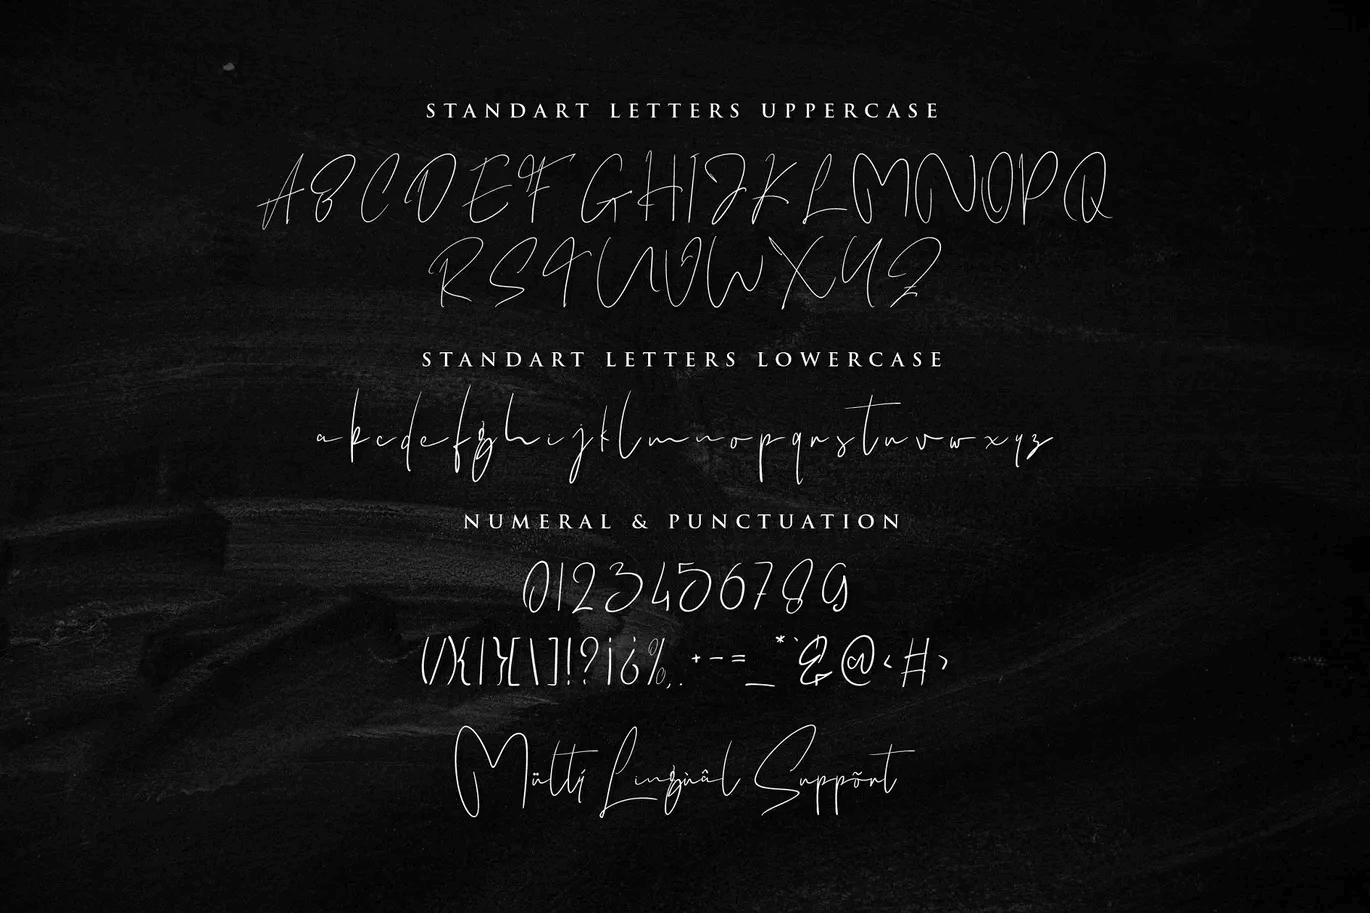 STANDART LETTERS UPPERCASE
ABCDEFGHIJKLMNOPQ
RSTUVWXYZ
STANDART LETTERS LOWERCASE
abcdefghijklmnopqrstuvwxyz
NUMERAL & PUNCTUATION
0123456789
(/){|}[\]!?¡¿%,. +-=_ *`&@‹#›
Mültí Lingùâl Suppõrt